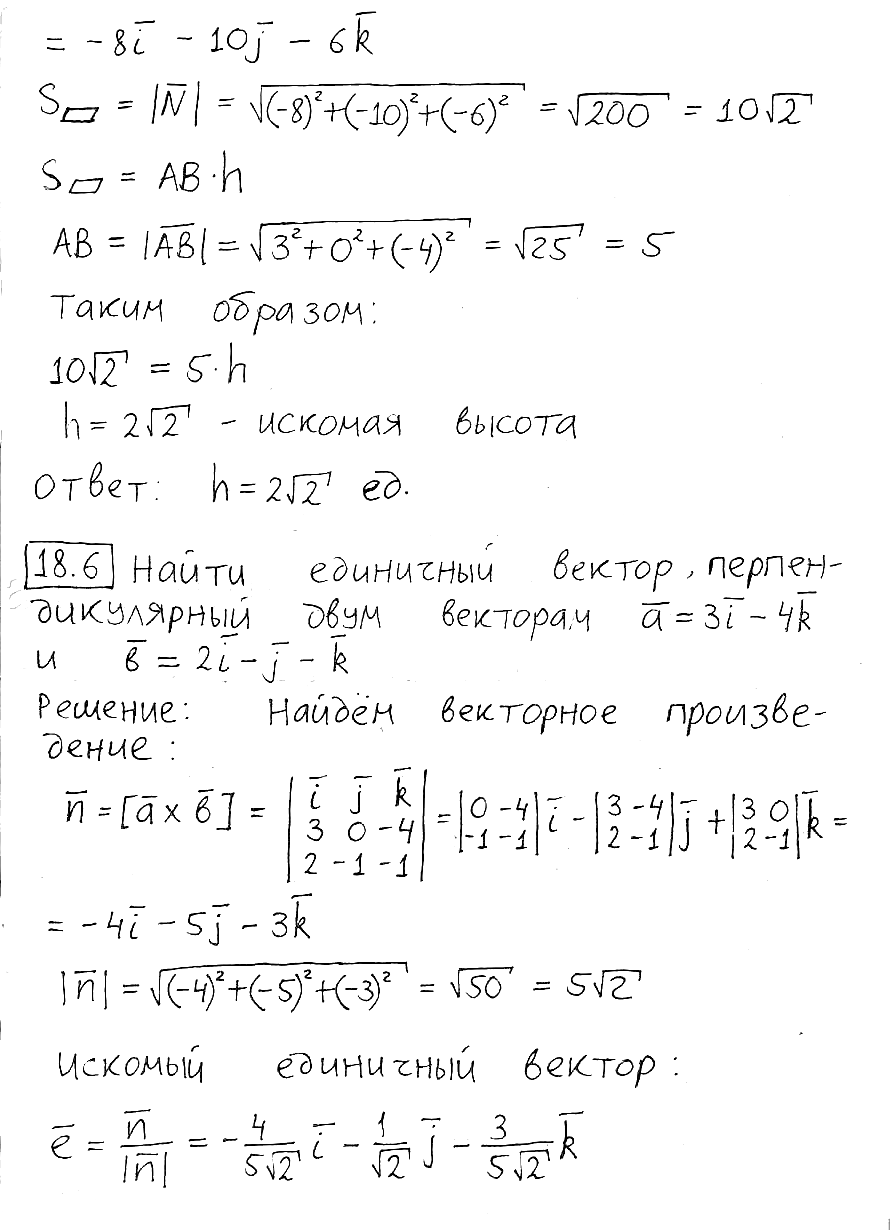 = -8i̅ - 10j̅ - 6k̅
S▱ = |N̅| = √((-8)²+(-10)²+(-6)²) = √200 = 10√2
S▱ = AB·h
AB = |A̅B̅| = √(3²+0²+(-4)²) = √25 = 5
Таким образом:
10√2 = 5·h
h = 2√2 - искомая высота
Ответ: h = 2√2 ед.
18.6 Найти единичный вектор, перпен-
дикулярный двум векторам a̅ = 3i̅ - 4k̅
и в̅ = 2i̅ - j̅ - k̅
Решение: Найдём векторное произве-
дение:
n̅ = [a̅ x в̅] = |i̅ j̅ k̅; 3 0 -4; 2 -1 -1| = |0 -4; -1 -1| i̅ - |3 -4; 2 -1| j̅ + |3 0; 2 -1| k̅ =
= -4i̅ - 5j̅ - 3k̅
|n̅| = √((-4)²+(-5)²+(-3)²) = √50 = 5√2
Искомый единичный вектор:
e̅ = n̅/|n̅| = -4/(5√2) i̅ - 1/√2 j̅ - 3/(5√2) k̅